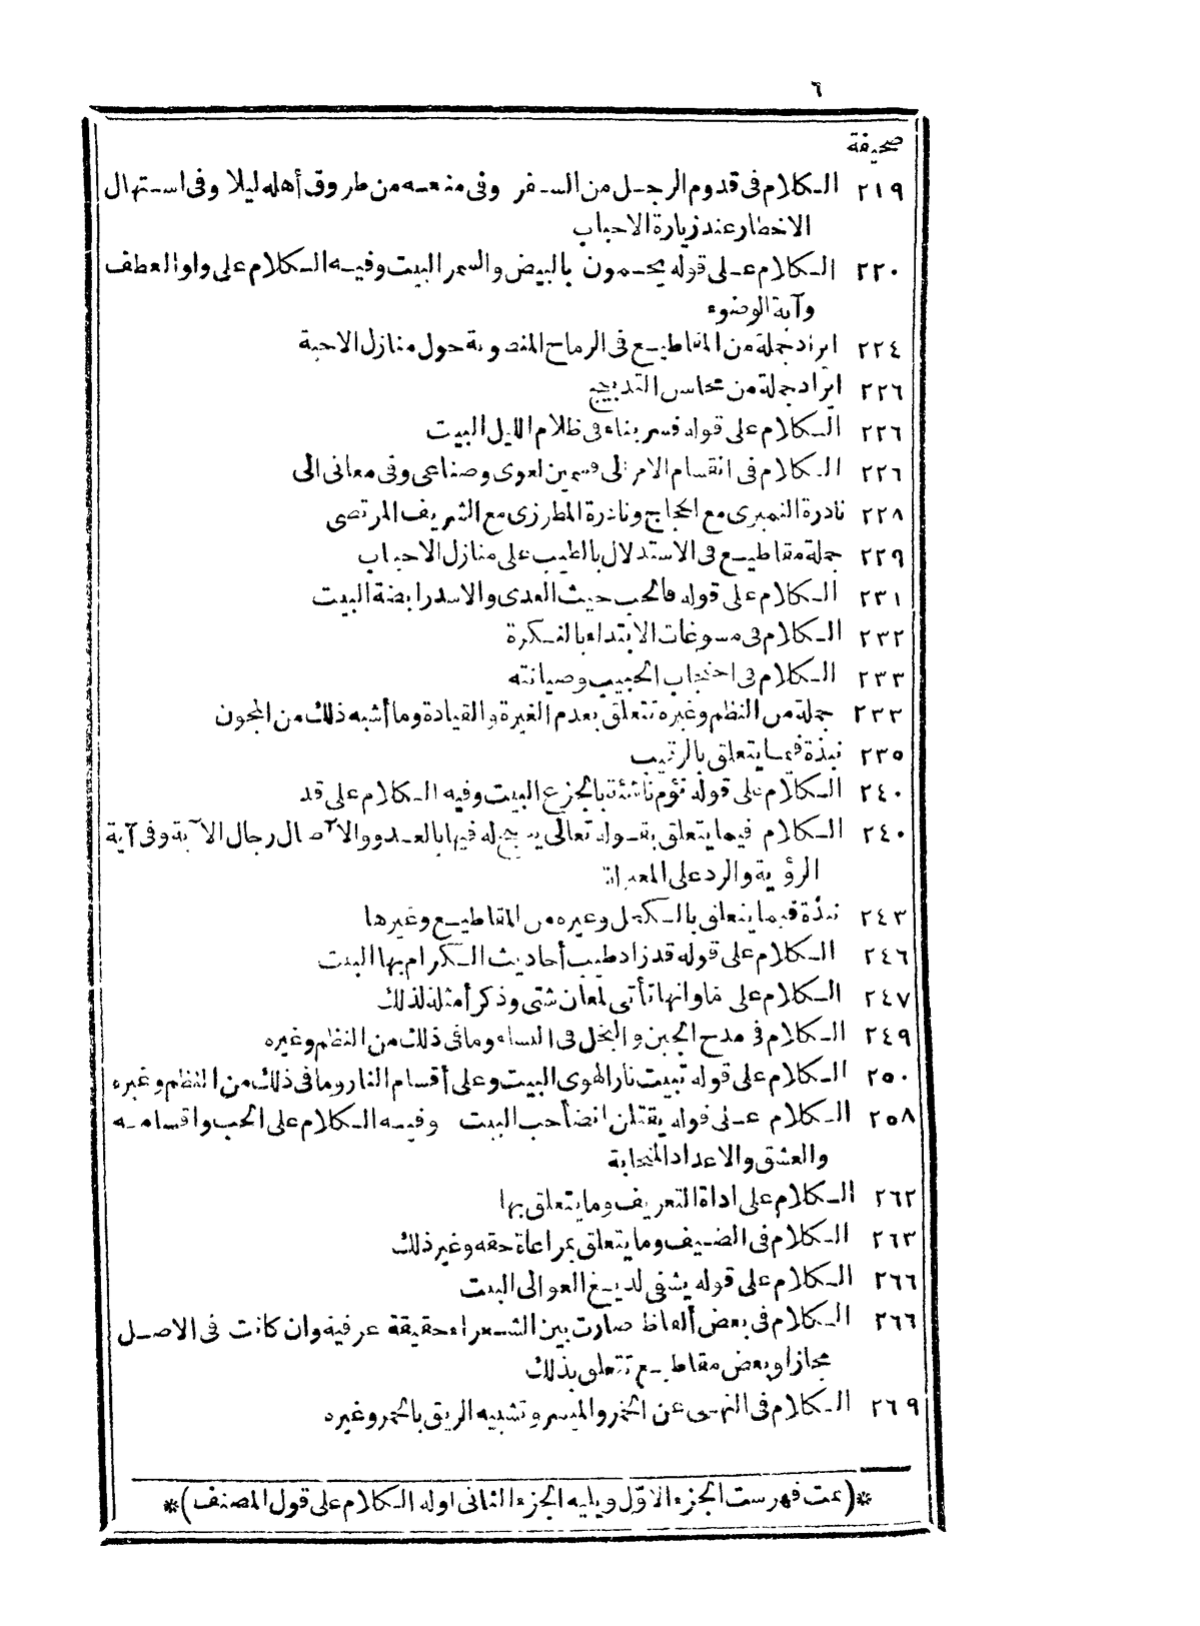 ٦
صحيفة
٢١٩ الكلام فى قدوم الرجل من السفر وفى منعه من طروق أهله ليلا وفى استهال
الاخطار عند زيارة الاحباب
٢٢٠ الكلام على قوله يحمون بالبيض والسمر البيت وفيه الكلام على واو العطف
وآية الوضوء
٢٢٤ ايراد جملة من المقاطيع فى الرماح المنصوبة حول منازل الاحبة
٢٢٦ ايراد جملة من محاسن التدبيج
٢٢٦ الكلام على قوله فسر بناء فى ظلام الليل البيت
٢٢٦ الكلام فى انقسام الامر الى قسمين لغوى وصناعى وفى معانى الى
٢٢٨ نادرة النميرى مع الحجاج ونادرة المطرزى مع الشريف المرتضى
٢٢٩ جملة مقاطيع فى الاستدلال بالطيب على منازل الاحباب
٢٣١ الكلام على قوله فالحب حيث العدى والاسد رابضة البيت
٢٣٢ الكلام فى مسوغات الابتداء بالنكرة
٢٣٣ الكلام فى احتجاب الحبيب وصيانته
٢٣٣ جملة من النظم وغيره تتعلق بعدم الغيرة والقيادة وما أشبه ذلك من المجون
٢٣٥ نبذة فيما يتعلق بالرقيب
٢٤٠ الكلام على قوله نؤم ناشئة بالجزع البيت وفيه الكلام على قد
٢٤٠ الكلام فيما يتعلق بقوله تعالى يسبح له فيها بالغدو والآصال رجال الآية وفى آية
الرؤية والرد على المعتزلة
٢٤٣ نبذة فيما يتعلق بالكحل وغيره من المقاطيع وغيرها
٢٤٦ الكلام على قوله قد زاد طيب أحاديث الكرام بها البيت
٢٤٧ الكلام على ما وانها تأتى لمعان شتى وذكر أمثلة لذلك
٢٤٩ الكلام فى مدح الجبن والبخل فى النساء وما فى ذلك من النظم وغيره
٢٥٠ الكلام على قوله تبيت نار الهوى البيت وعلى أقسام النار وما فى ذلك من النظم وغيره
٢٥٨ الكلام على قوله يقتلن انضاء حب البيت وفيه الكلام على الحب واقسامه
والعشق والاعداد المتحابة
٢٦٢ الكلام على اداة التعريف وما يتعلق بها
٢٦٣ الكلام فى الضيف وما يتعلق بمراعاة حقه وغير ذلك
٢٦٦ الكلام على قوله يشفى لديغ العوالى البيت
٢٦٦ الكلام فى بعض ألفاظ صارت بين الشعراء حقيقة عرفية وان كانت فى الاصل
مجازا وبعض مقاطيع تتعلق بذلك
٢٦٩ الكلام فى النهى عن الخمر والميسر وتشبيه الريق بالخمر وغيره
*(تمت فهرست الجزء الاوّل ويليه الجزء الثانى اوله الكلام على قول المصنف)*